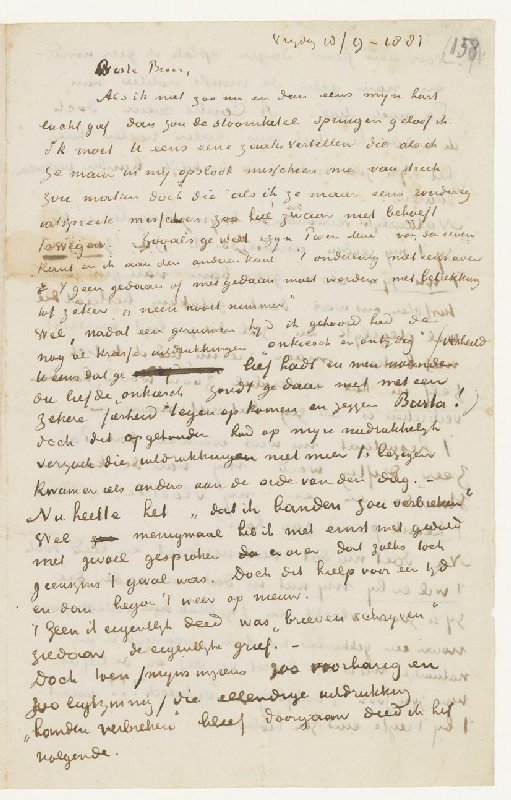 Vrijdag 18/9 - 1881
158
Beste Broer,
Als ik niet zoo nu en dan eens mijn hart
lucht gaf dan zou de stoomketel springen geloof ik.
Ik moet U eens eene zaak vertellen die als ik
ze maar in mij opsloot misschien me van streek
zou maken doch die als ik ze maar eens ronduit
uitspreek misschien zoo heel zwaar niet behoeft
te wegen. Zooals ge weet zijn Pa en Moe van de eene
kant en ik aan den anderen kant onderling niet eens over
't geen gedaan of niet gedaan moet worden met betrekking
tot zeker „neen nooit nimmer”
Wel, nadat een geruimen tijd ik gehoord had de
nog al krasse uitdrukkingen „onkiesch en ontijdig” (verbeeld
U eens dat ge lief hadt en men noemde
die liefde onkiesch zoudt ge daar niet met een
zekere fierheid tegen op komen en zeggen Basta!)
doch dit opgehouden had op mijn nadrukkelijk
verzoek die uitdrukkingen niet meer te bezigen
kwam er iets anders aan de orde van den dag. -
Nu heette het „dat ik banden zou verbreken”
Wel menigmaal heb ik met ernst met geduld
met gevoel gesproken er over dat zulks toch
geenszins 't geval was. Doch dit hielp voor een tijd
en dan begon 't weer op nieuw.
't Geen ik eigenlijk deed was „brieven schrijven”
ziedaar de eigentlijke grief. -
Doch toen /mijns inziens zoo voorbarig en
zoo ligtzinnig/ die ellendige uitdrukking
„banden verbreken” bleef doorgaan deed ik het
volgende.